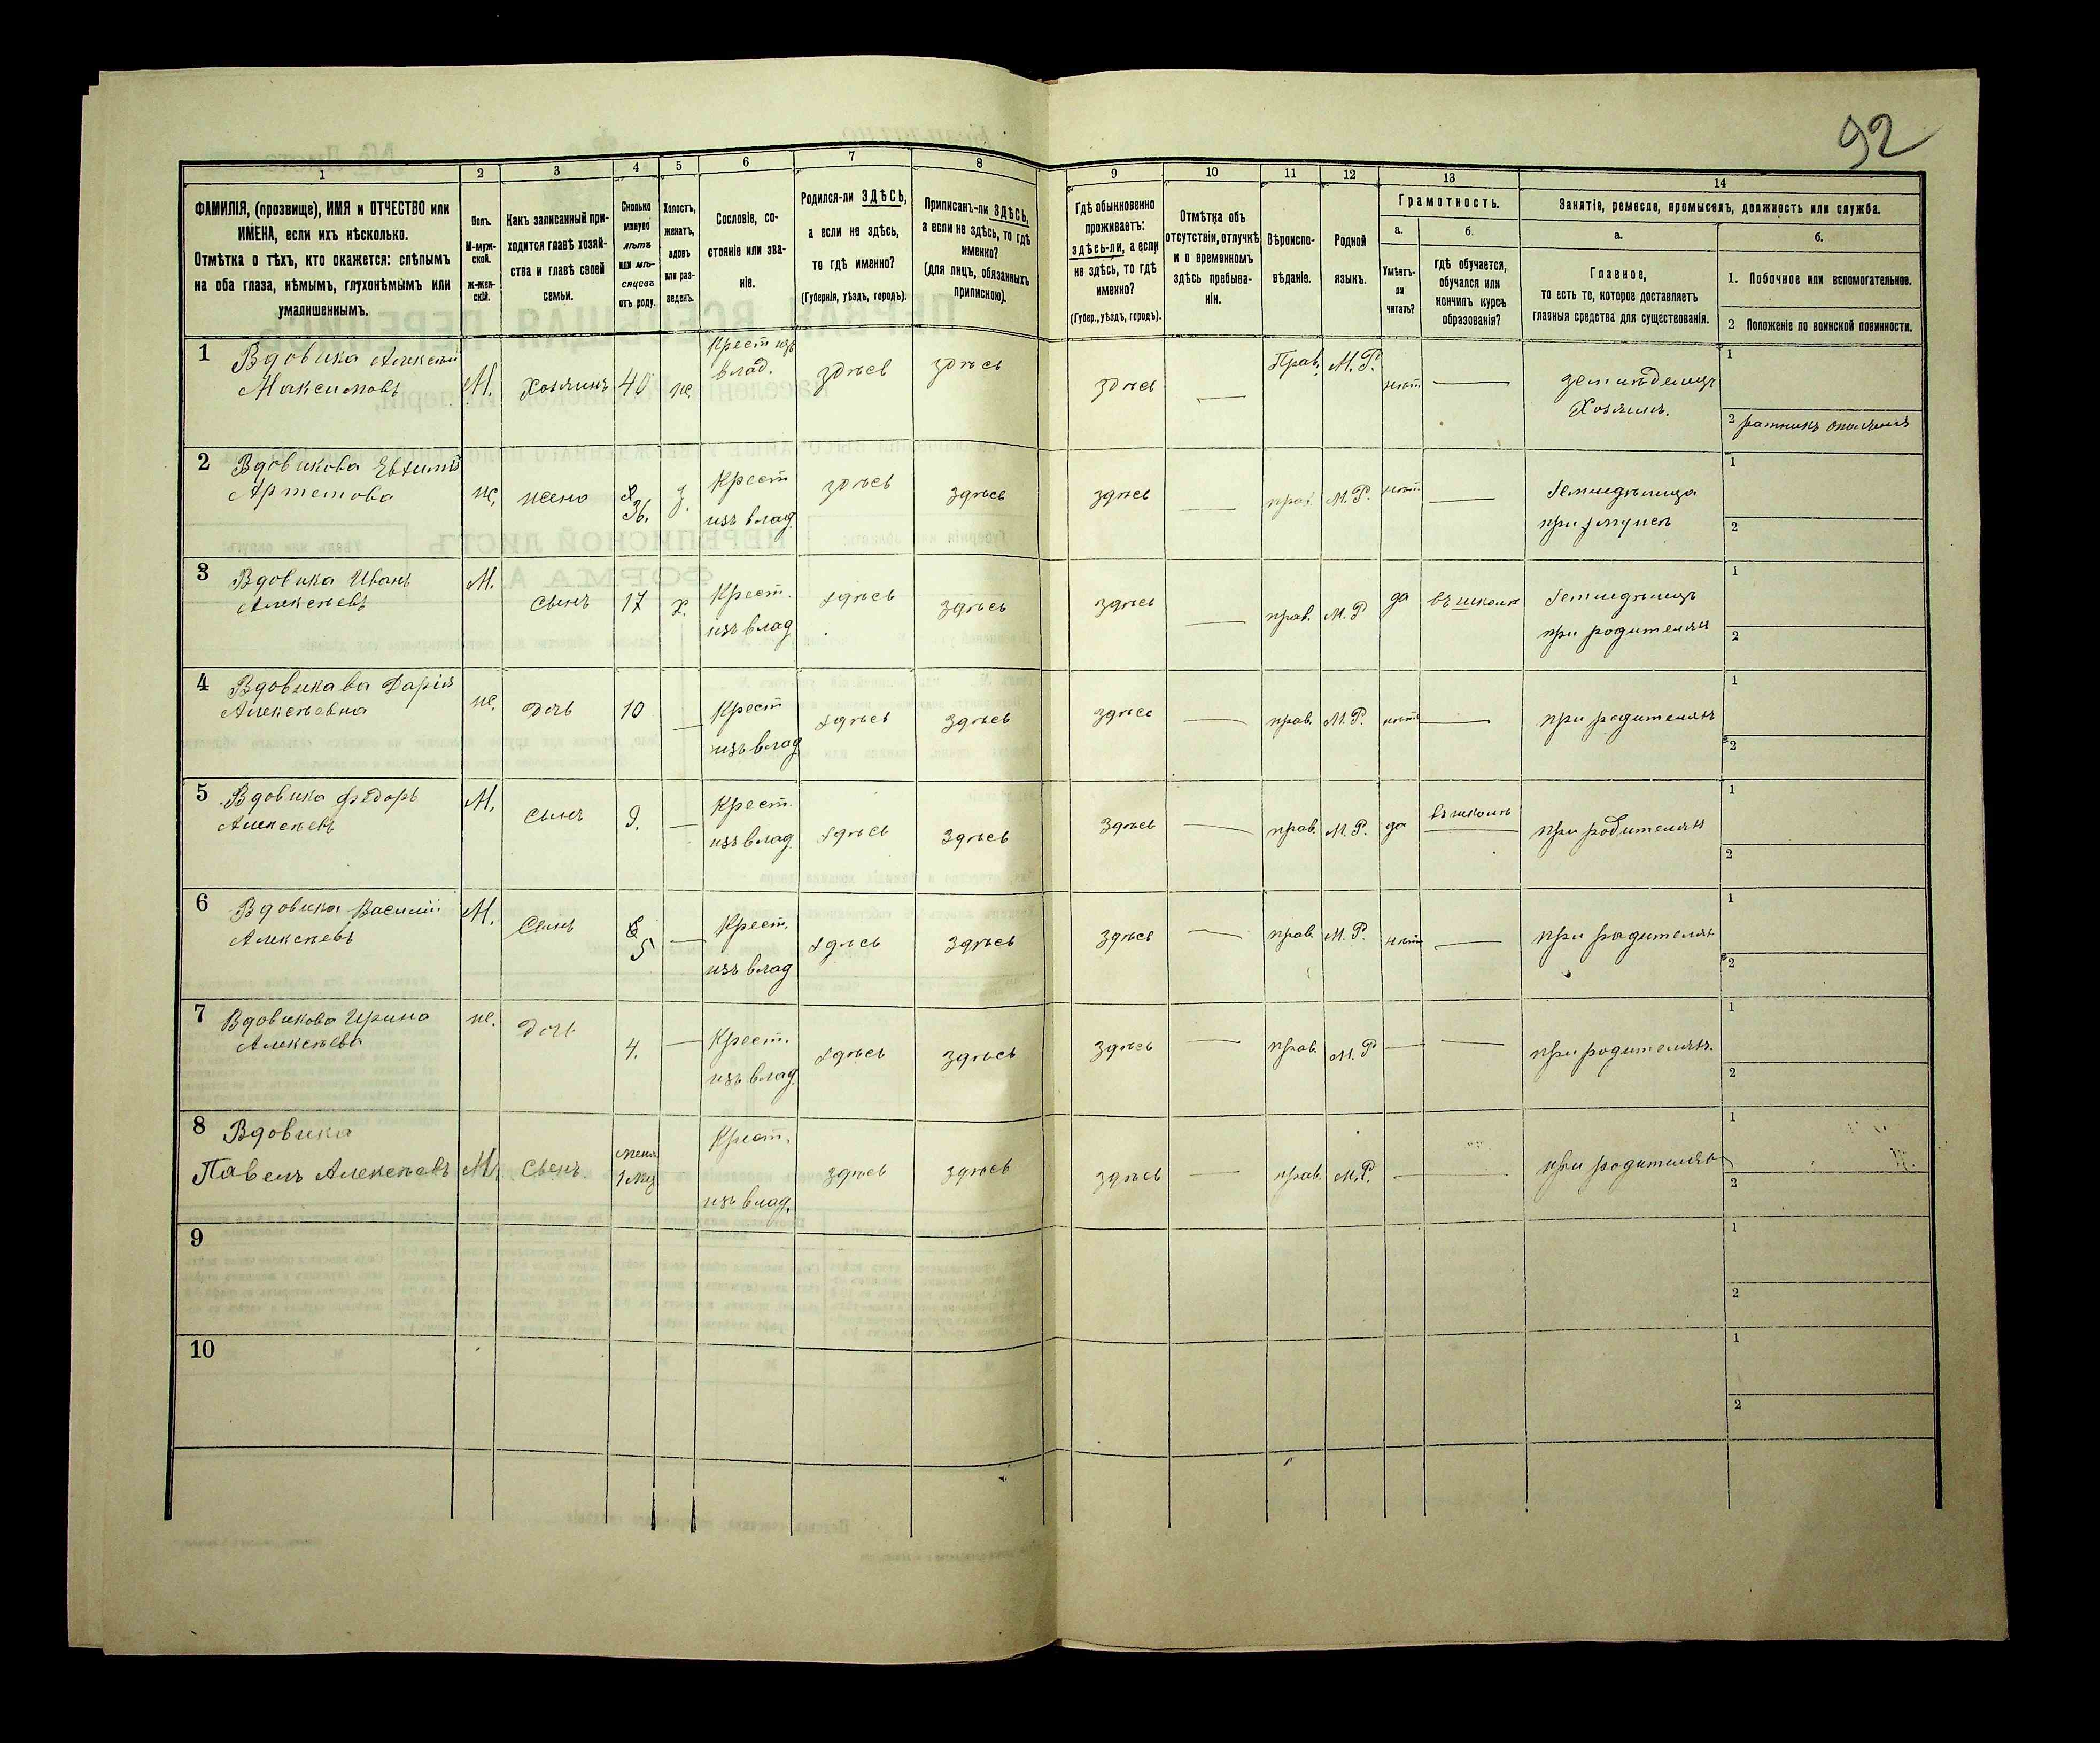 92
1
2
3
4
5
6
7
8
9
10
11
12
13
14
ФАМИЛІЯ, (прозвище), ИМЯ и ОТЧЕСТВО или
ИМЕНА, если ихъ нѣсколько.
Отмѣтка о тѣхъ, кто окажется: слѣпымъ
на оба глаза, нѣмымъ, глухонѣмымъ или
умалишеннымъ.
Полъ.
М-муж-
ской.
ж-жен-
скій.
Какъ записанный при-
ходится главѣ хозяй-
ства и главѣ своей
семьи.
Сколько
минуло
лѣтъ
или мѣ-
сяцевъ
отъ роду.
Холостъ,
женатъ,
вдовъ
или раз-
веденъ.
Сословіе, со-
стояніе или зва-
ніе.
Родился-ли ЗДѢСЬ,
а если не здѣсь,
то гдѣ именно?
(Губернія, уѣздъ, городъ).
Приписанъ-ли ЗДѢСЬ,
а если не здѣсь, то гдѣ
именно?
(для лицъ, обязанныхъ
припискою).
Гдѣ обыкновенно
проживаетъ:
здѣсь-ли, а если
не здѣсь, то гдѣ
именно?
(Губер., уѣздъ, городъ).
Отмѣтка объ
отсутствіи, отлучкѣ
и о временномъ
здѣсь пребыва-
ніи.
Вѣроиспо-
вѣданіе.
Родной
языкъ.
Грамотность.
а.
Умѣетъ-
ли
читать?
б.
гдѣ обучается,
обучался или
кончилъ курсъ
образованія?
Занятіе, ремесло, промыселъ, должность или служба.
а.
Главное,
то есть то, которое доставляетъ
главныя средства для существованія.
б.
1. Побочное или вспомогательное.
2 Положеніе по воинской повинности.
1 Вдовика Алексѣй
Максимовъ
М. Хозяинъ 40 же.
Крест изъ
влад.
здѣсь здѣсь здѣсь — Прав. М.Р. нѣт —
земледелецъ
Хозяинъ.
1
2 ратникъ ополченія
2 Вдовикова Евдимія
Артемова
же, жена 36. з.
Крест
изъ влад.
здѣсь здѣсь здѣсь — прав. М.Р. нѣт —
Земледѣлица
при мужеѣ
1
2
3 Вдовика Иванъ
Алексѣевъ
М. сынъ 17 х.
Крест.
изъ влад
здѣсь здѣсь здѣсь — прав. М.Р да въ школѣ
Земледѣлецъ
при родителяхъ
1
2
4 Вдовикава Дарія
Алексѣевна
же. Дочь 10 —
Крест
изъ влад
здѣсь здѣсь здѣсь — прав. М.Р. нѣтъ —
при родителяхъ
1
2
5 Вдовика Федоръ
Алексѣевъ
М. Сынъ 9. —
Крест.
изъ влад.
здѣсь здѣсь здѣсь — прав. М.Р. да въ школѣ
при родителяхъ
1
2
6 Вдовика Василій
Алексѣевъ
М. Сынъ 5 —
Крест.
изъ влад
здѣсь здѣсь здѣсь — прав. М.Р. нѣт —
при родителях
1
2
7 Вдовикова Ирина
Алексѣева
же. Дочь 4. —
Крест.
изъ влад.
здѣсь здѣсь здѣсь — прав. М.Р — —
при родителяхъ.
1
2
8 Вдовика
Павелъ Алексѣевъ
М. Сынъ
1 мц
Крест.
изъ влад.
здѣсь здѣсь здѣсь — прав. М.Р. —
при родителях
1
2
9
1
2
10
1
2